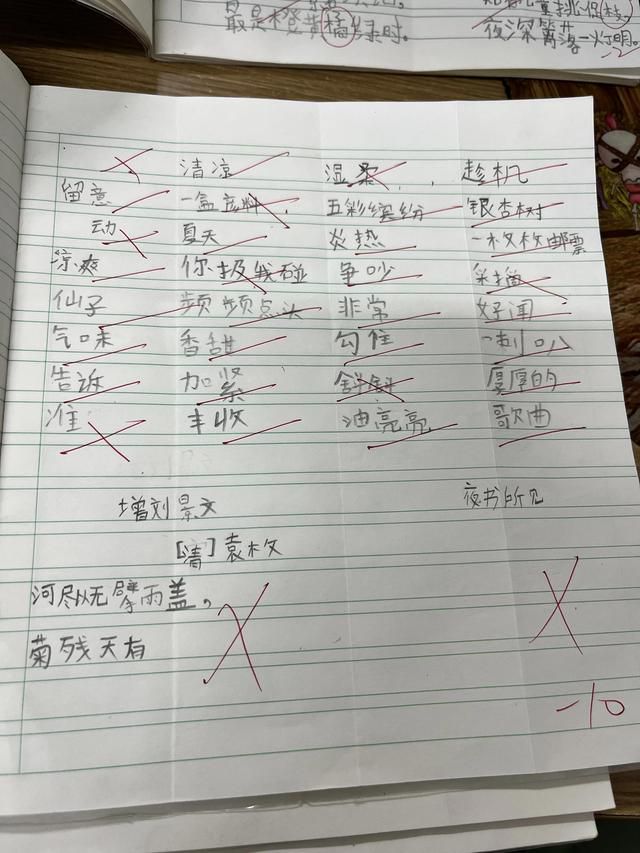 最是橙黄橘绿时。
夜深篱落一灯明。
清凉 湿 趁机
留意 一盒 五彩缤纷 银杏树
动 夏天 炎热 一枚枚邮票
凉爽 你 我碰 争吵
仙子 频频点头 非常 好闻
气味 香甜 勾住 一 喇叭
告诉 加紧 厚厚的
准 丰收 油亮亮 歌曲
增刘景文 夜书所见
[清]袁枚
河尽以无擎雨盖，
菊残天有
-10